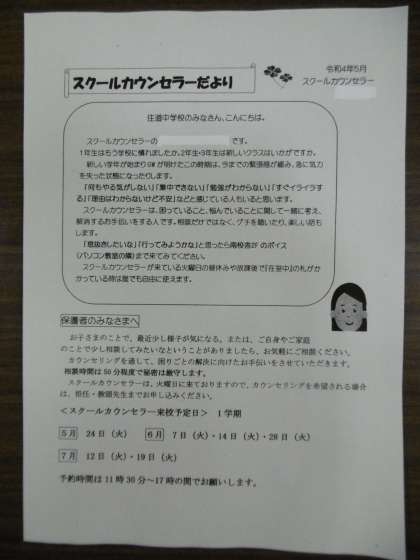 令和4年5月
スクールカウンセラーだより
スクールカウンセラー
住道中学校のみなさん、こんにちは。
スクールカウンセラーの
です。
1年生はもう学校に慣れましたか。2年生・3年生は新しいクラスはいかがですか。
新しい学年が始まりGWが明けたこの時期は、今までの緊張感が緩み、急に気力
を失った状態になったりします。
「何もやる気がしない」「集中できない」「勉強がわからない」「すぐイライラす
る」「理由はわからないけど不安」などと感じている人もいると思います。
スクールカウンセラーは、困っていること、悩んでいることに関して一緒に考え、
解消するお手伝いをする人です。相談だけではなく、グチを聴いたり、楽しい話も
します。
「息抜きしたいな」「行ってみようかな」と思ったら南校舎2F のボイス
(パソコン教室の隣)まで来てみてください。
スクールカウンセラーが来ている火曜日の昼休みや放課後で『在室中』の札がか
かっている時は誰でも自由に使えます。
保護者のみなさまへ
お子さまのことで、最近少し様子が気になる。または、ご自身やご家庭
のことで少し相談してみたいなということがありましたら、お気軽にご相談ください。
カウンセリングを通して、困りごとの解決に向けたお手伝いをさせていただきます。
相談時間は50分程度で秘密は厳守します。
スクールカウンセラーは、火曜日に来ておりますので、カウンセリングを希望される場合
は、担任・教頭先生までお申し込みください。
＜スクールカウンセラー来校予定日＞ 1学期
5月 24日(火) 6月 7日(火)・14日(火)・28日(火)
7月 12日(火)・19日(火)
予約時間は11時30分～17時の間でお願いします。